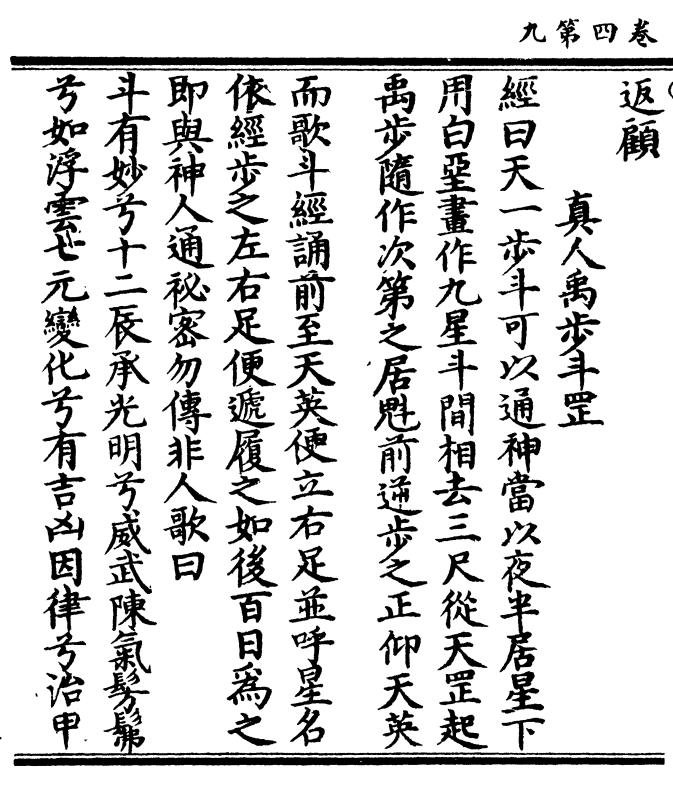 卷四第九
返顧
真人禹步斗罡
經曰天一步斗可以通神當以夜半居星下
用白堊畫作九星斗間相去三尺從天罡起
禹步隨作次第之居魁前逆步之正仰天英
而歌斗經誦前至天英便立右足並呼星名
依經步之左右足便遞履之如後百日為之
即與神人通祕密勿傳非人歌曰
斗有妙兮十二辰承光明兮威武陳氣髣髴
兮如浮雲七元變化兮有吉凶因律兮治申